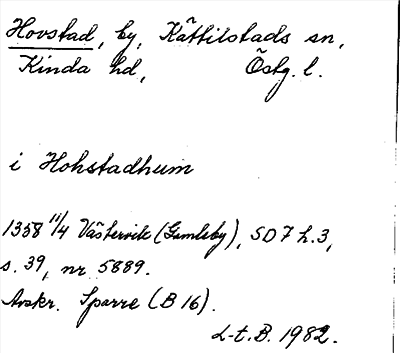 Hovstad, by, Kättilstads sn,
Kinda hd, Östg. l.
i Hohstadhum
1358 11/4 Västervik (Gamleby), SD 7 h.3,
s. 39, nr 5889.
Avskr. Sparre (B 16).
L-t. B. 1982.